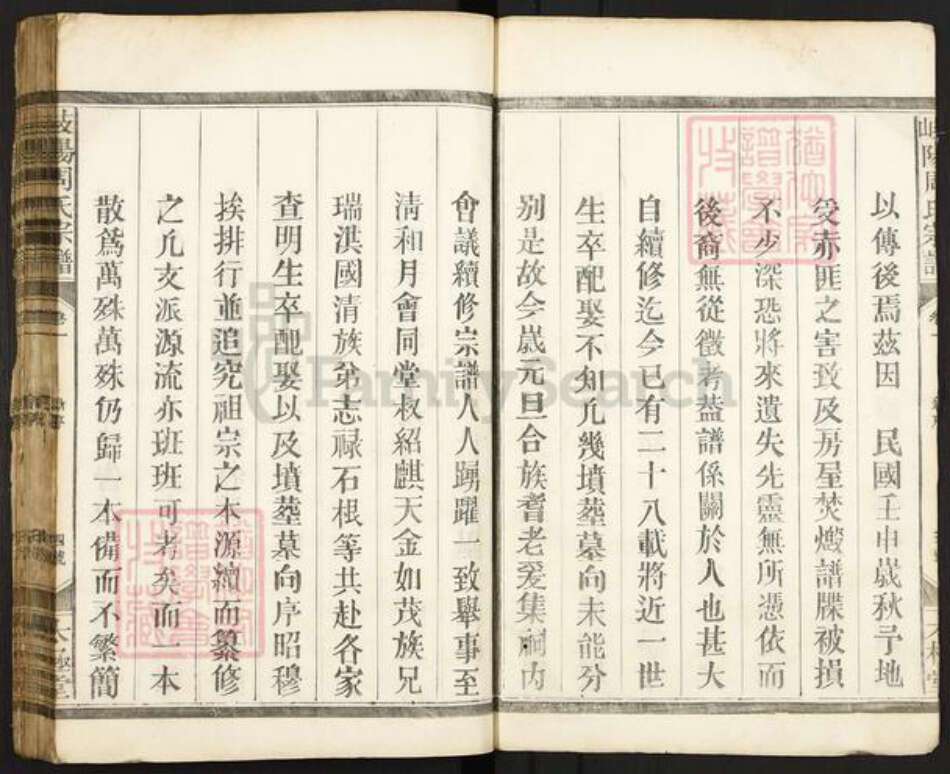 以傳後焉茲因　民國壬申歲秋予地
受赤匪之害致及房屋焚燬譜牒被損
不少深恐將來遺失先靈無所憑依而
後裔無從徵考葢譜係關於人也甚大
自續修迄今已有二十八載將近一世
生卒配娶不知凡幾墳塋墓向未能分
別是故今歲元旦合族耆老爰集祠內
會議續修宗譜人人踴躍一致舉事至
清和月會同堂叔紹麒天金如茂族兄
瑞淇國清族弟志祿石根等共赴各家
查明生卒配娶以及墳塋墓向序昭穆
挨排行並追究祖宗之本源續而纂修
之凡支派源流亦班班可考矣而一本
散爲萬殊萬殊仍歸一本備而不繁簡
岐陽周氏宗譜
卷一
FamilySearch